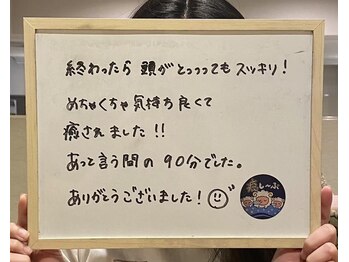 終わったら 頭がとっっってもスッキリ!
めちゃくちゃ気持ち良くて
癒されました!!
あっと言う間の90分でした。
ありがとうございました!
癒し〜ぷ